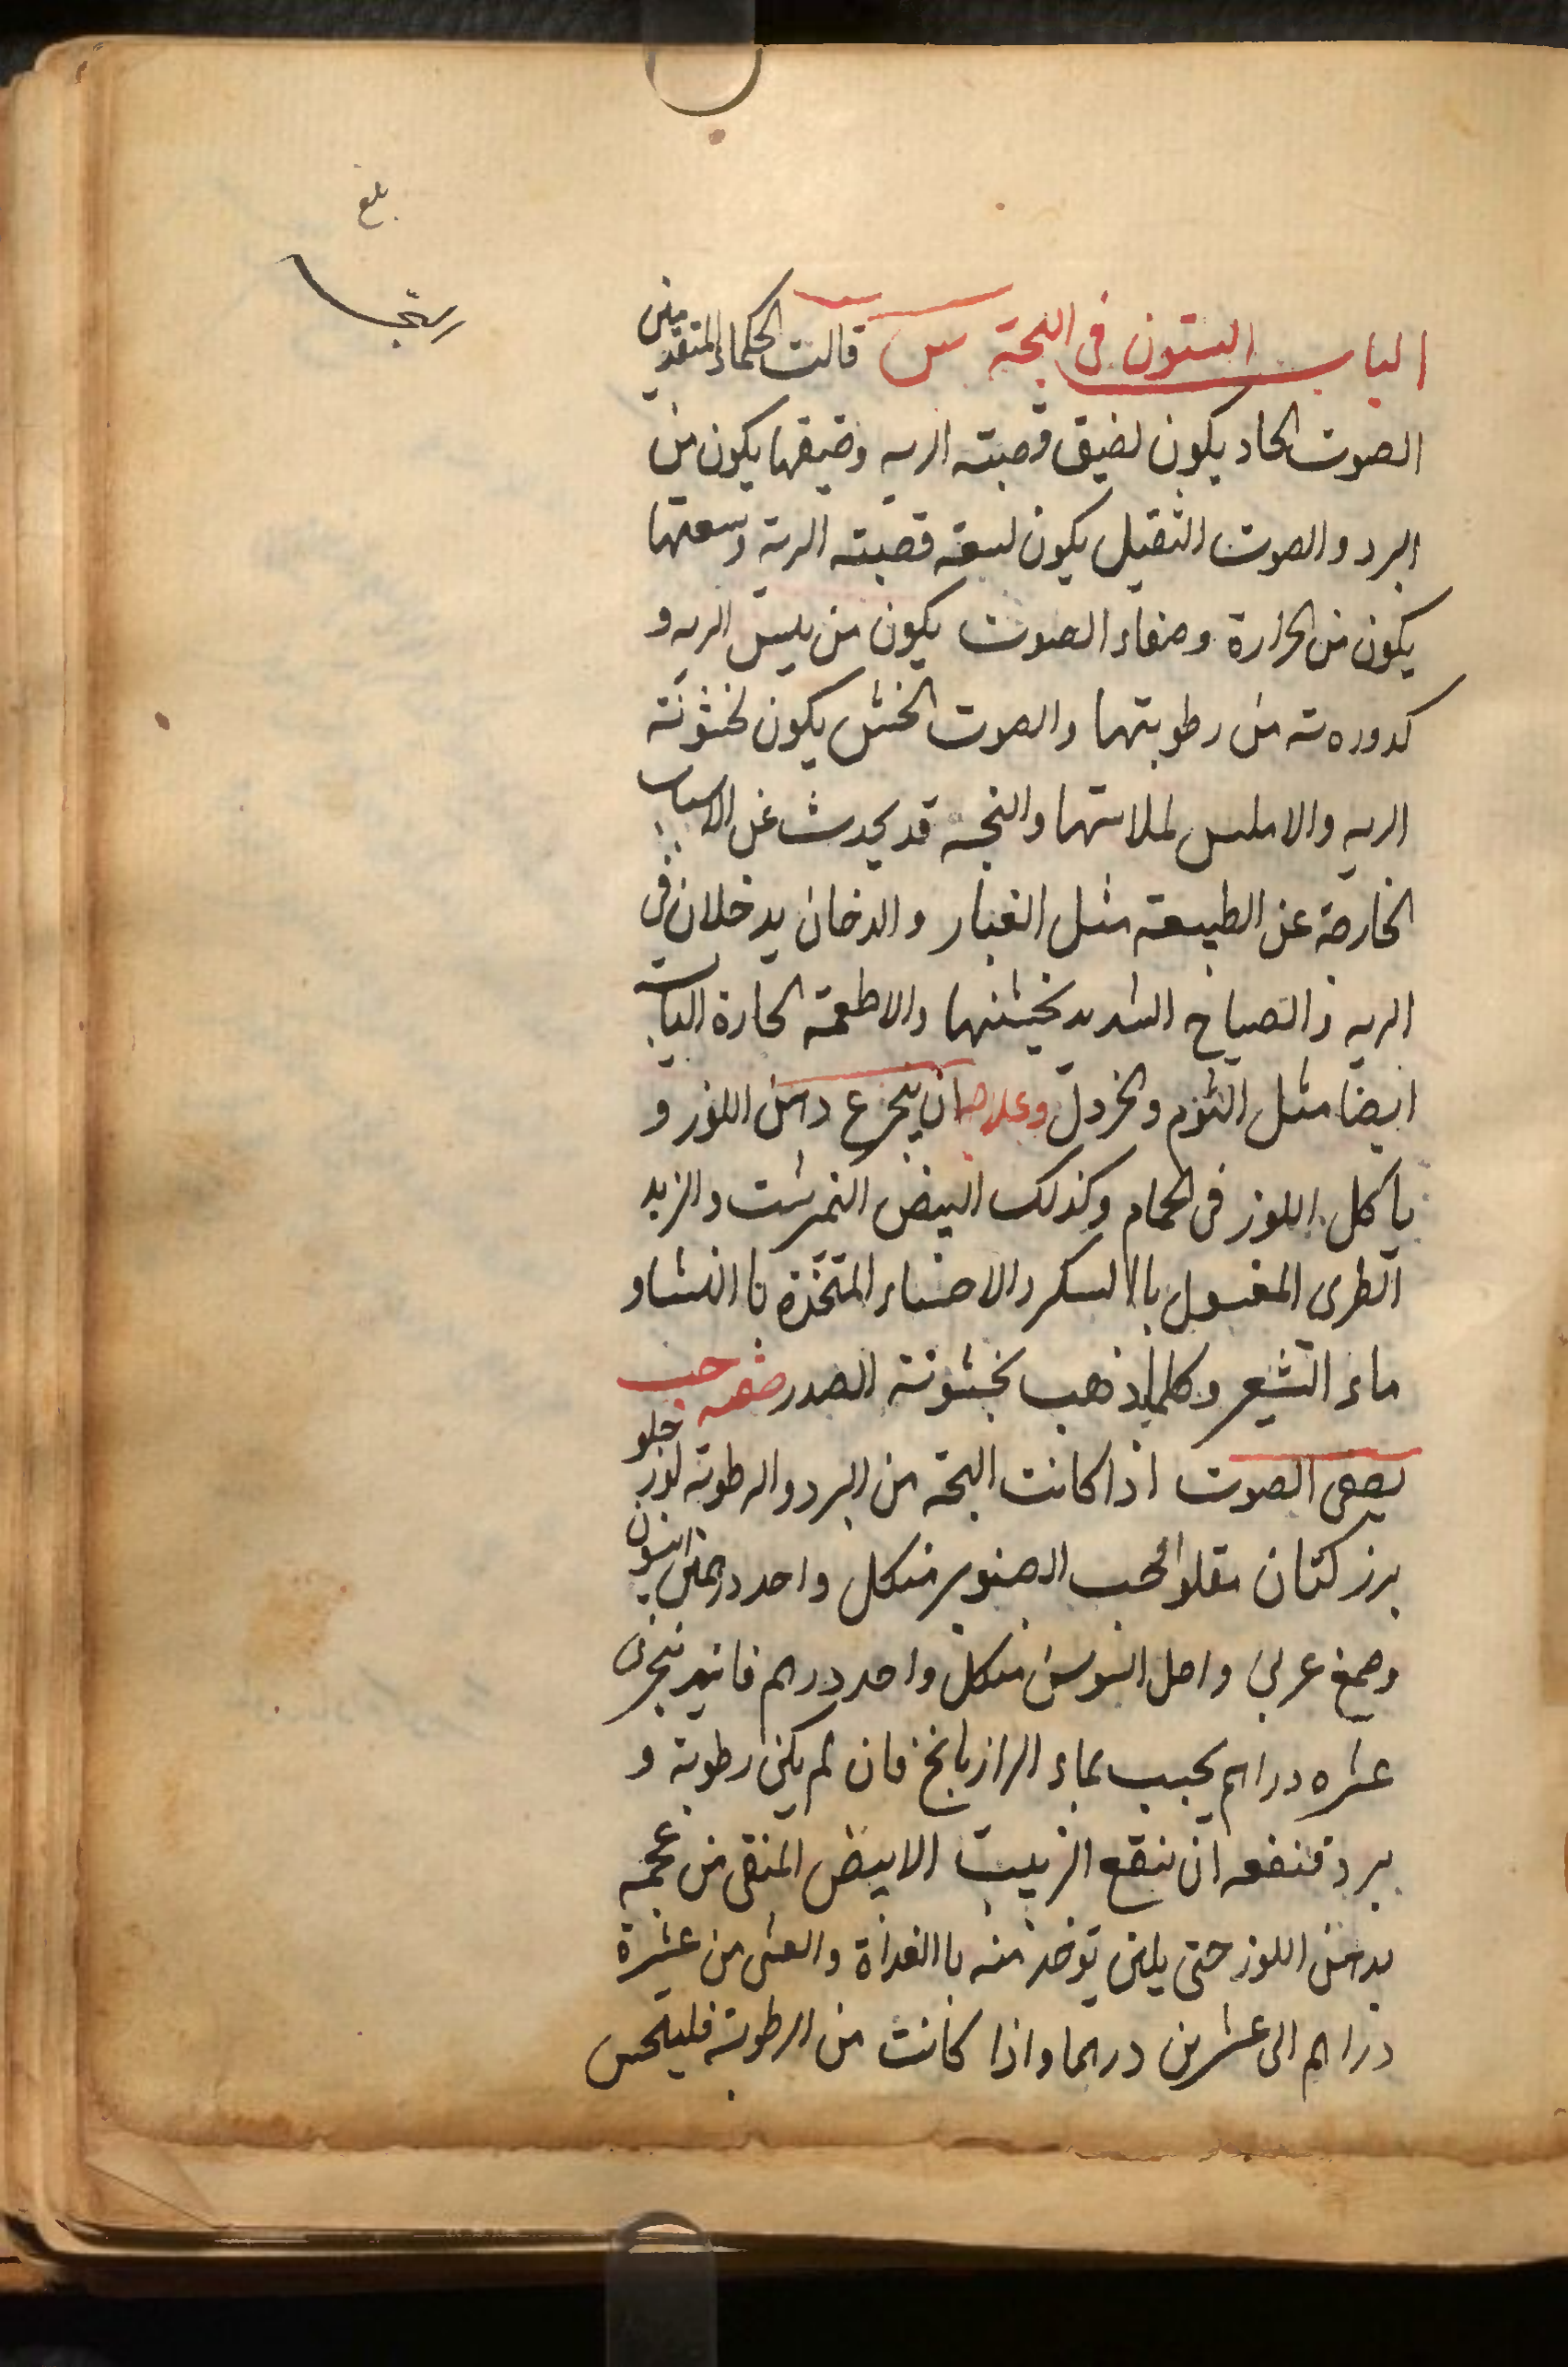 بلغ
الباب الستون فى البحة س قالت الحكماء المتقدمين
الصوت الحاد يكون لضيق قصبته الريه وضيقها يكون من
البرد والصوت الثقيل يكون لسعة قصبته الرية وسعتها
يكون من الحرارة وصفاء الصوت يكون من يبس الريه و
كدورەته من رطوبتها والصوت الخشن يكون لخشونة
الريه والاملس لملاستها والبحه قد يحدث عن الاسباب
الخارجة عن الطبيعة مثل الغبار والدخان يدخلان فى
الريه والصياح الشديد يخشنها والاطعمة الحارة اليابسة
ايضا مثل الثوم والخردل وعلاجه ان يتجرع دهن اللوز و
ياكل اللوز فى الحمام وكذلك البيض النمرشت والزبد
الطرى المغسول باالسكر والاحساء المتخذة باالنشاو
ماء الشعير وكلما يذهب بخشونة الصدر صفه حب
يصفى الصوت اذا كانت البحة من البرد والرطوبة لوز حلو
برز كتان مقلو الحب الصنوبر من كل واحد درهمين انيسون
وصمغ عربى واصل السوس من كل واحد درهم فانيد سجزى
عشره دراهم يحبب بماء الرازيانج فان لم يكن رطوبة و
برد فنفعه ان ينقع الزبيب الابيض المنقى من عجمه
بدهن اللوز حتى يلين توخذ منه باالغداة والعشى من عشرة
دراهم الى عشرين درهما واذا كانت من الرطوبة فليتحس